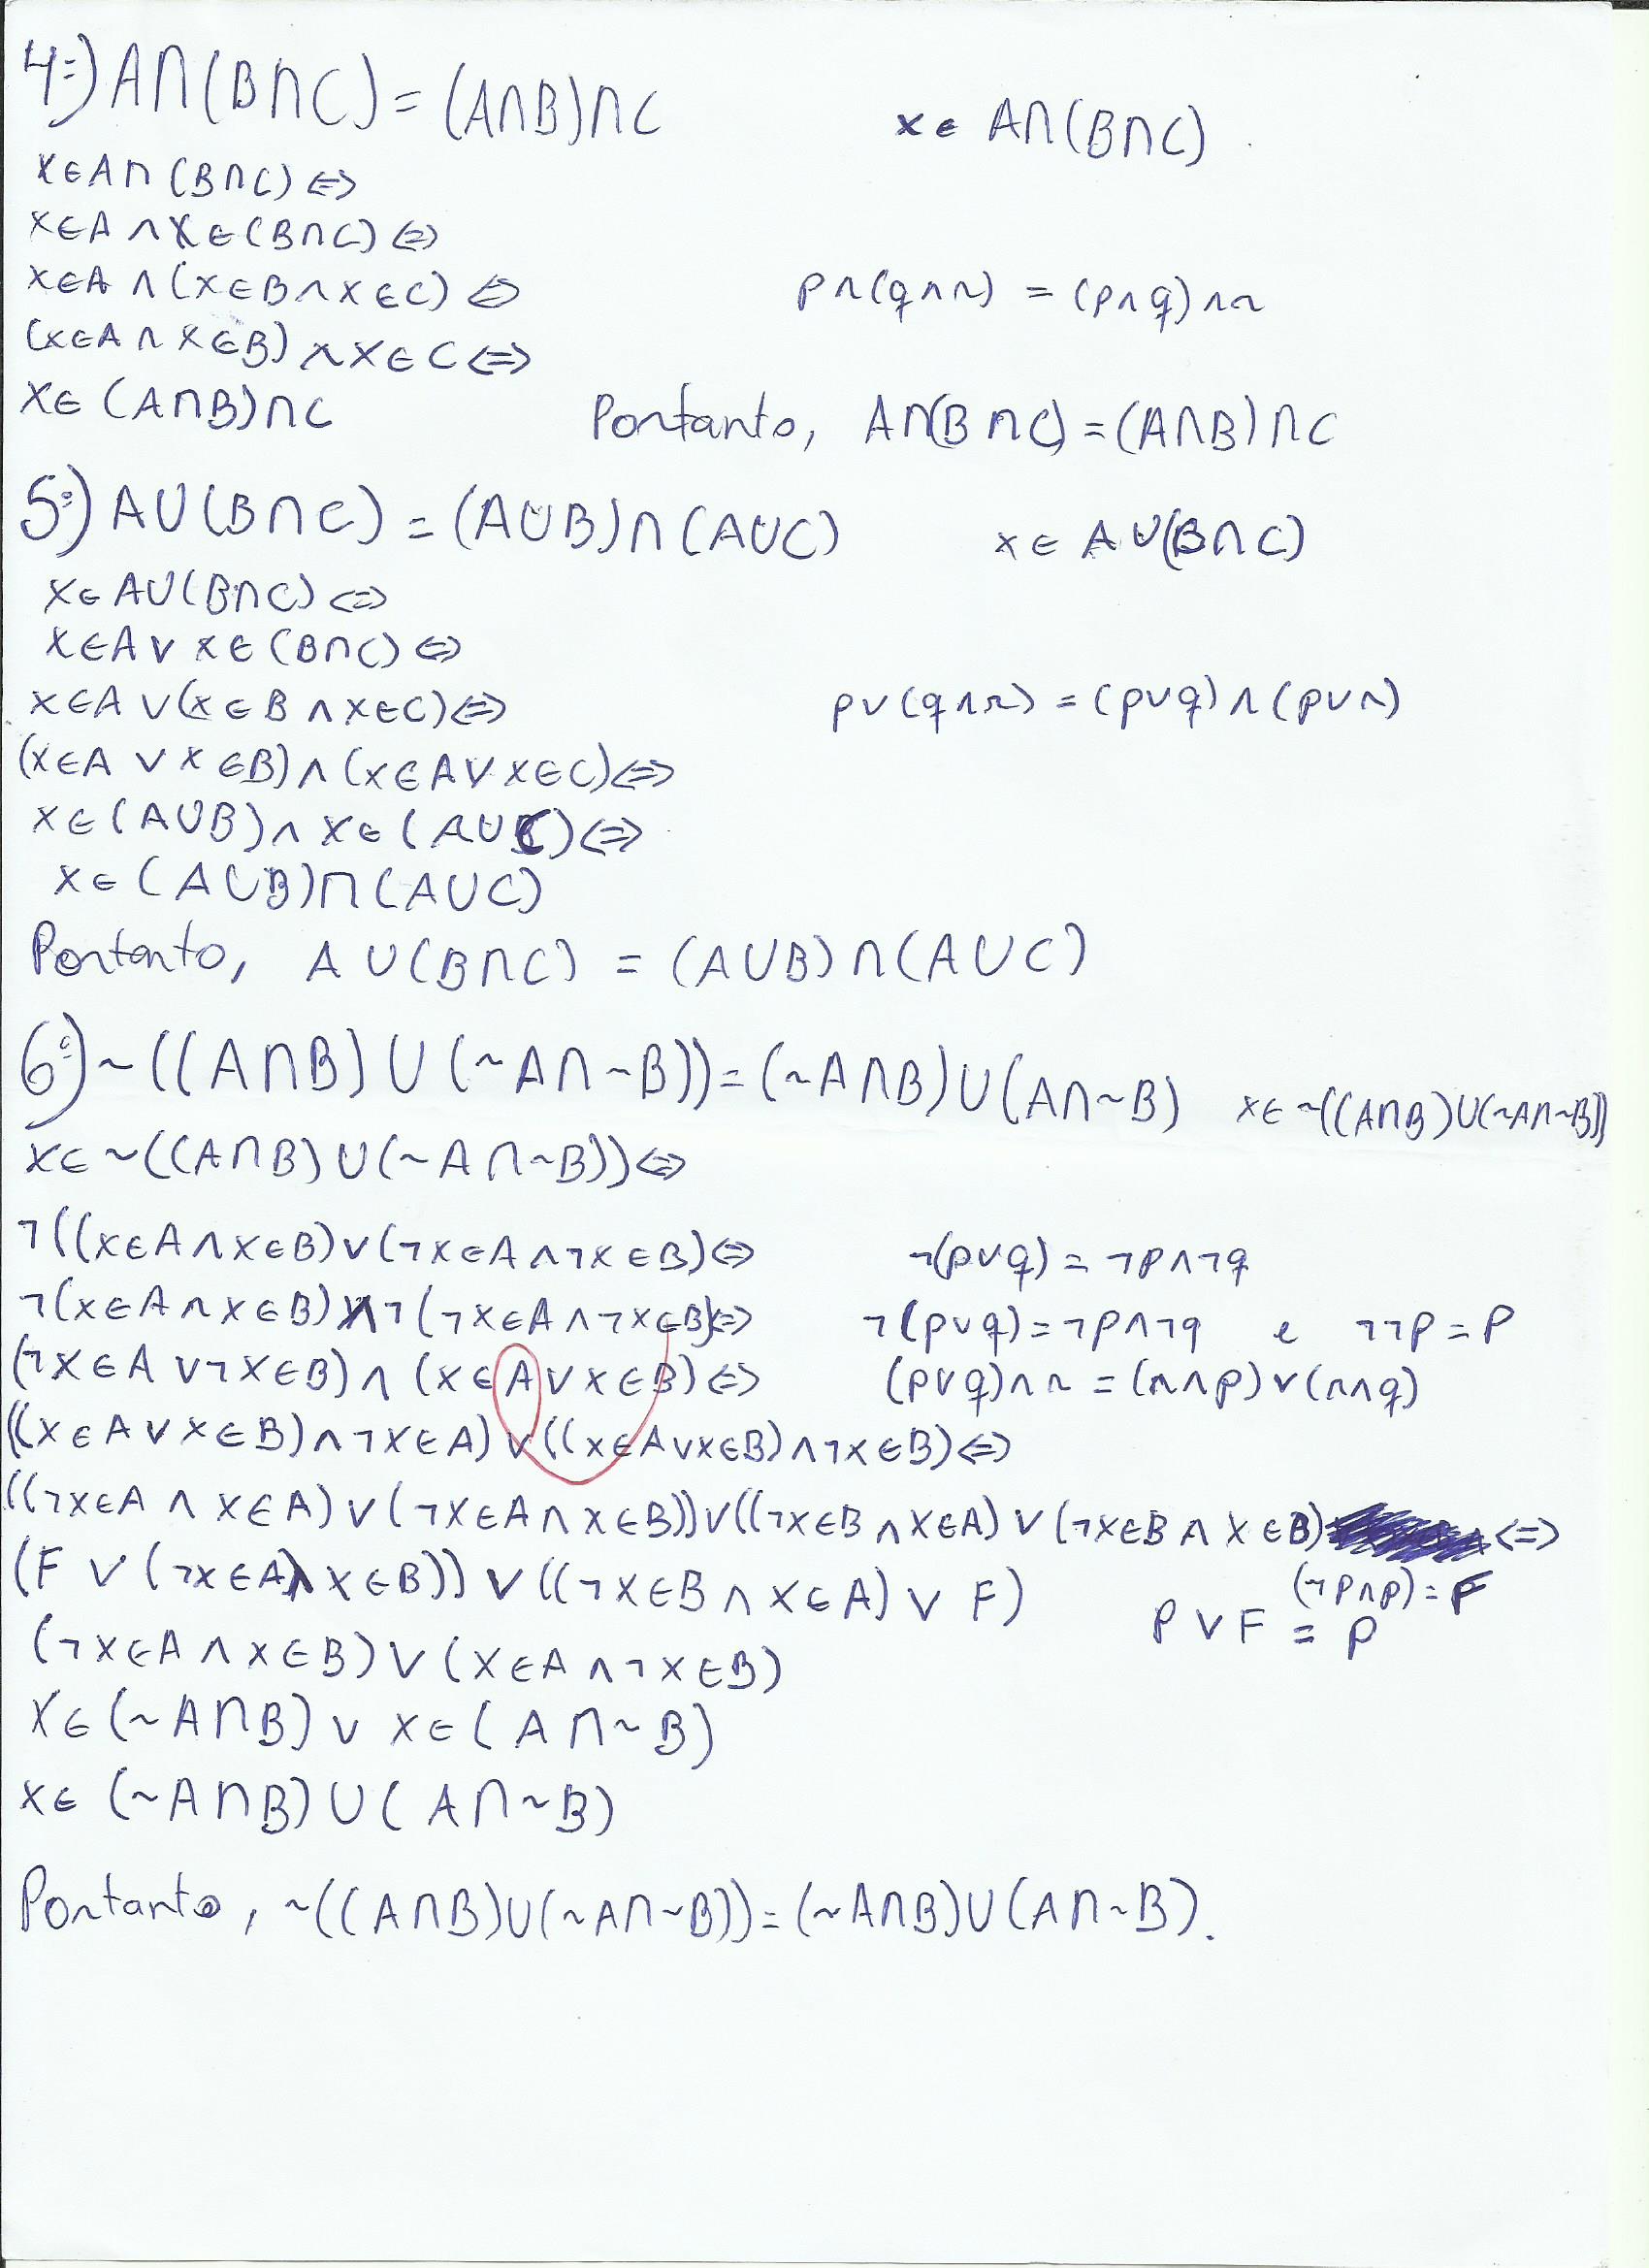 4º) A∩(B∩C) = (A∩B)∩C x ∈ A∩(B∩C)
x∈A∩(B∩C) ⇔
x∈A ∧ x∈(B∩C) ⇔
x∈A ∧ (x∈B ∧ x∈C) ⇔ p∧(q∧r) = (p∧q)∧r
(x∈A ∧ x∈B) ∧ x∈C ⇔
x∈(A∩B)∩C Portanto, A∩(B∩C) = (A∩B)∩C
5º) A∪(B∩C) = (A∪B)∩(A∪C) x∈ A∪(B∩C)
x∈A∪(B∩C) ⇔
x∈A ∨ x∈(B∩C) ⇔
x∈A ∨ (x∈B ∧ x∈C) ⇔ p∨(q∧r) = (p∨q)∧(p∨r)
(x∈A ∨ x∈B) ∧ (x∈A ∨ x∈C) ⇔
x∈(A∪B) ∧ x∈(A∪C) ⇔
x∈(A∪B)∩(A∪C)
Portanto, A∪(B∩C) = (A∪B)∩(A∪C)
6º) ~((A∩B)∪(~A∩~B)) = (~A∩B)∪(A∩~B) x∈~((A∩B)∪(~A∩~B))
x∈~((A∩B)∪(~A∩~B)) ⇔
¬((x∈A ∧ x∈B) ∨ (¬x∈A ∧ ¬x∈B) ⇔ ¬(p∨q) = ¬p∧¬q
¬(x∈A ∧ x∈B) ∧ ¬(¬x∈A ∧ ¬x∈B) ⇔ ¬(p∨q) = ¬p∧¬q e ¬¬p = p
(¬x∈A ∨ ¬x∈B) ∧ (x∈A ∨ x∈B) ⇔ (p∨q)∧r = (r∧p)∨(r∧q)
((x∈A ∨ x∈B) ∧ ¬x∈A) ∨ ((x∈A ∨ x∈B) ∧ ¬x∈B) ⇔
((¬x∈A ∧ x∈A) ∨ (¬x∈A ∧ x∈B)) ∨ ((¬x∈B ∧ x∈A) ∨ (¬x∈B ∧ x∈B) ⇔
(F ∨ (¬x∈A ∧ x∈B)) ∨ ((¬x∈B ∧ x∈A) ∨ F) (¬p∧p) = F
p ∨ F = p
(¬x∈A ∧ x∈B) ∨ (x∈A ∧ ¬x∈B)
x∈(~A∩B) ∨ x∈(A∩~B)
x∈(~A∩B)∪(A∩~B)
Portanto, ~((A∩B)∪(~A∩~B)) = (~A∩B)∪(A∩~B).